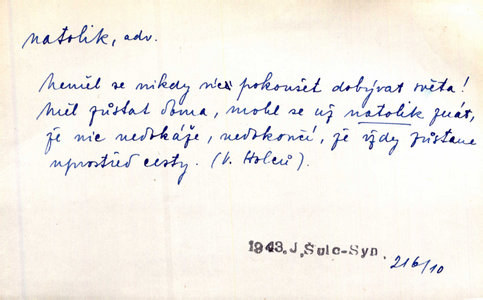 natolik, adv.
Neměl se nikdy pokoušet dobývat světa!
Měl zůstat doma, mohl se už natolik znát,
že nic nedokáže, nedokončí, že vždy zůstane
uprostřed cesty. (V. Holců).
1943. J. Šulc-Syn.
216/10